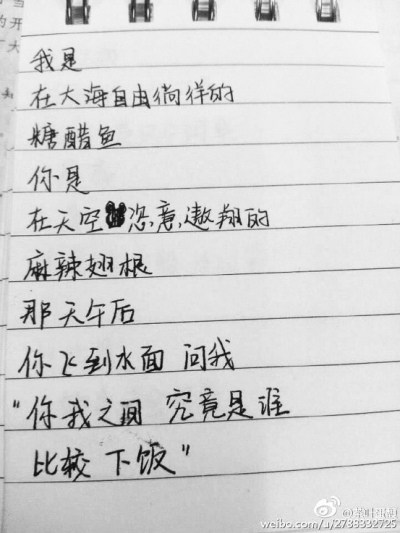 我是
在大海自由徜徉的
糖醋鱼
你是
在天空恣意遨翔的
麻辣翅根
那天午后
你飞到水面 问我
"你我之间 究竟是谁
比较 下饭"
weibo.com/u/2738332725